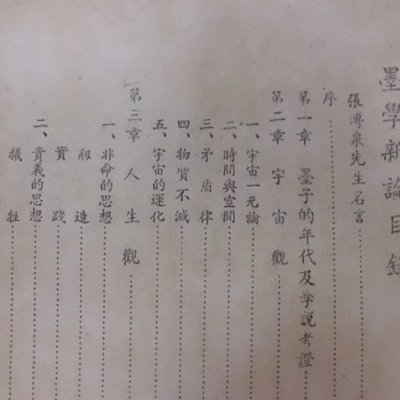 墨學新論目錄
張溥泉先生名言
序
第一章 墨子的年代及学説考證
第二章 宇宙觀
一、宇宙一元論
二、時間與空間
三、矛盾律
四、物質不滅
五、宇宙的運化
第三章 人生觀
一、非命的思想
創造
實踐
二、貴義的思想
犠牲